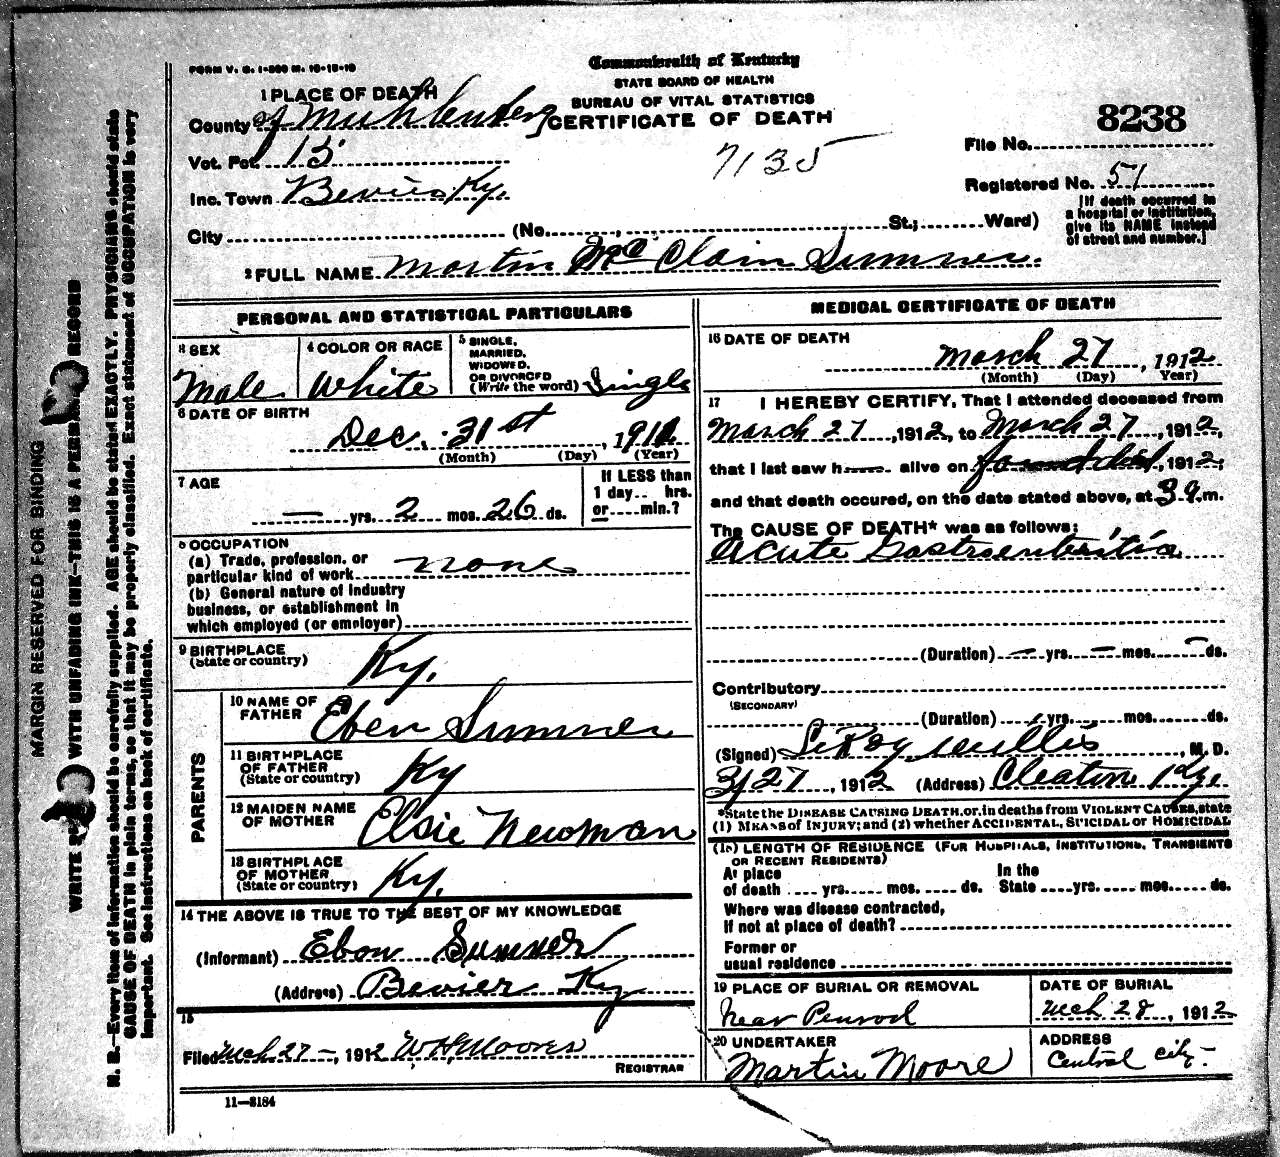 FORM V. S. 1-500 M. 10-18-10
Commonwealth of Kentucky
STATE BOARD OF HEALTH
BUREAU OF VITAL STATISTICS
CERTIFICATE OF DEATH
8238
7135
File No.
Registered No. 51
[If death occurred in
a hospital or institution,
give its NAME instead
of street and number.]
1 PLACE OF DEATH
County of Muhlenberg
Vot. Pct. 15
Inc. Town Bevier Ky.
City (No. , St.; Ward)
2 FULL NAME Martin Mc Clain Sumner.
PERSONAL AND STATISTICAL PARTICULARS
3 SEX
Male
4 COLOR OR RACE
White
5 SINGLE,
MARRIED,
WIDOWED,
OR DIVORCED
(Write the word) Single
6 DATE OF BIRTH
Dec. 31st, 1911
(Month) (Day) (Year)
7 AGE
— yrs. 2 mos. 26 ds.
If LESS than
1 day.. hrs.
or....min.?
8 OCCUPATION
(a) Trade, profession, or
particular kind of work none
(b) General nature of industry
business, or establishment in
which employed (or employer)
9 BIRTHPLACE
(State or country) Ky.
PARENTS
10 NAME OF
FATHER Eben Sumner
11 BIRTHPLACE
OF FATHER
(State or country) Ky
12 MAIDEN NAME
OF MOTHER Elsie Newman
13 BIRTHPLACE
OF MOTHER
(State or country) Ky.
14 THE ABOVE IS TRUE TO THE BEST OF MY KNOWLEDGE
(Informant) Ebon Sumner
(Address) Bevier Ky
15
Filed Mch 27 – , 1912 W H Moores
REGISTRAR
11—3184
MEDICAL CERTIFICATE OF DEATH
16 DATE OF DEATH
March 27, 1912
(Month) (Day) (Year)
17 I HEREBY CERTIFY, That I attended deceased from
March 27, 1912, to March 27, 1912,
that I last saw h alive on found dead, 1912,
and that death occured, on the date stated above, at 3 a.m.
The CAUSE OF DEATH* was as follows:
Acute Gastroenteritis
(Duration) — yrs. — mos. — ds.
Contributory
(SECONDARY)
(Duration) yrs. mos. ds.
(Signed) LeRoy Willis, M. D.
3/27, 1912 (Address) Cleaton Ky.
*State the DISEASE CAUSING DEATH, or, in deaths from VIOLENT CAUSES, state
(1) MEANS of INJURY; and (2) whether ACCIDENTAL, SUICIDAL or HOMICIDAL
(18) LENGTH OF RESIDENCE (FOR HOSPITALS, INSTITUTIONS, TRANSIENTS
OR RECENT RESIDENTS)
At place
of death .... yrs. mos. ds.
In the
State yrs. mos. ds.
Where was disease contracted,
If not at place of death?
Former or
usual residence
19 PLACE OF BURIAL OR REMOVAL
Near Penrod
DATE OF BURIAL
Mch 28, 1912
20 UNDERTAKER
Martin Moore
ADDRESS
Central City
MARGIN RESERVED FOR BINDING
WRITE WITH UNFADING INK—THIS IS A PERMANENT RECORD
N. B.—Every item of information should be carefully supplied. AGE should be stated EXACTLY. PHYSICIANS should state
CAUSE OF DEATH in plain terms, so that it may be properly classified. Exact statement of OCCUPATION is very
important. See instructions on back of certificate.